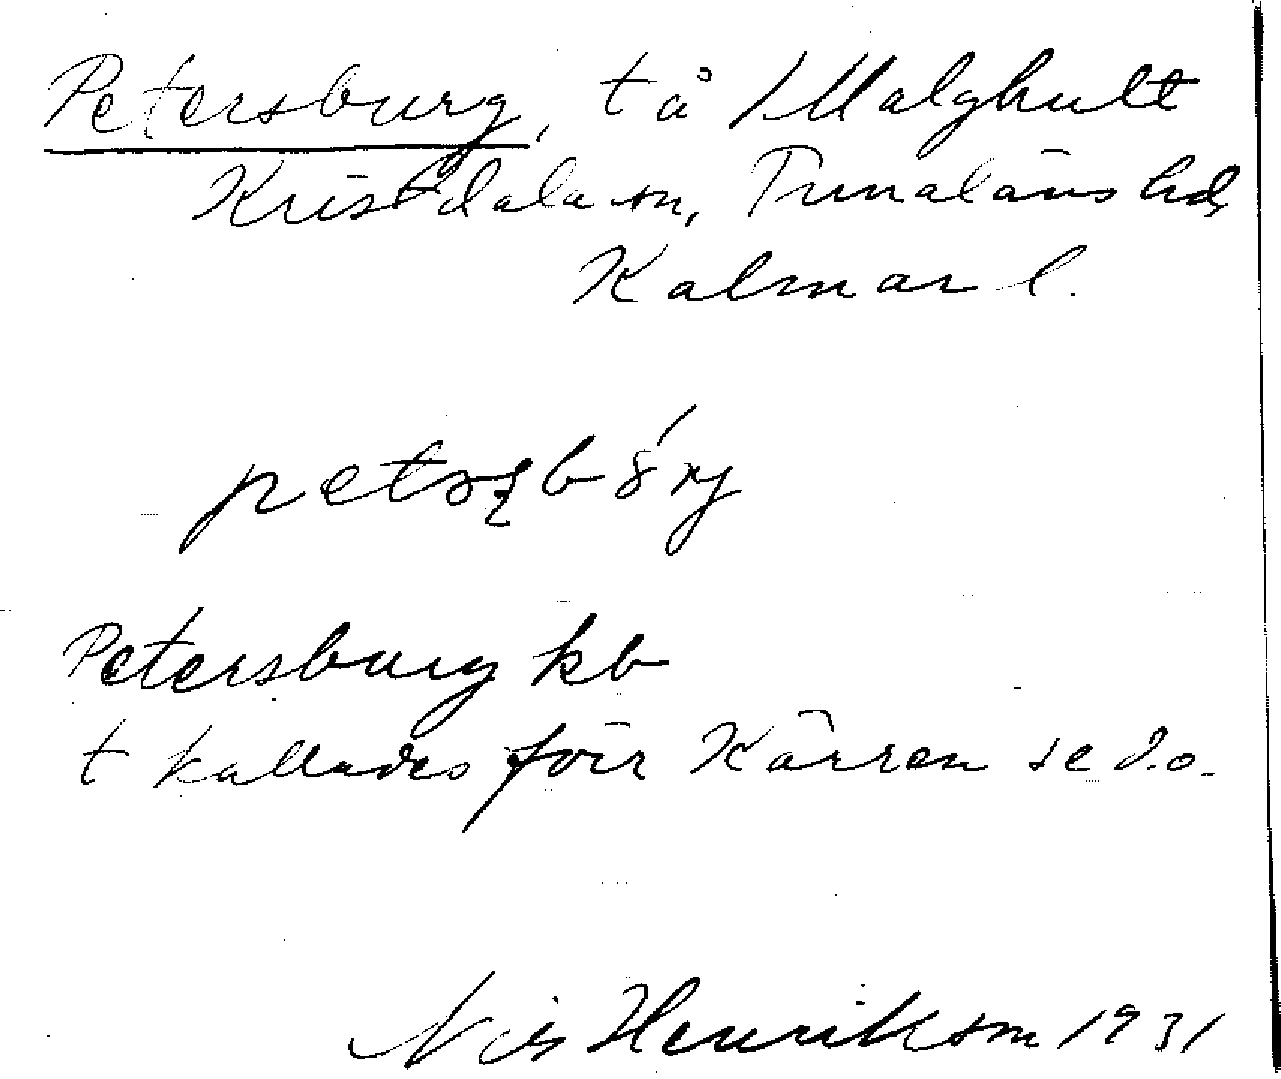 Petersburg, t å Malghult
Kristdala sn, Tunaläns hd,
Kalmar l.
Petersburg kb
t kallades förr Kärren se d.o.
Nils Henrikson 1931